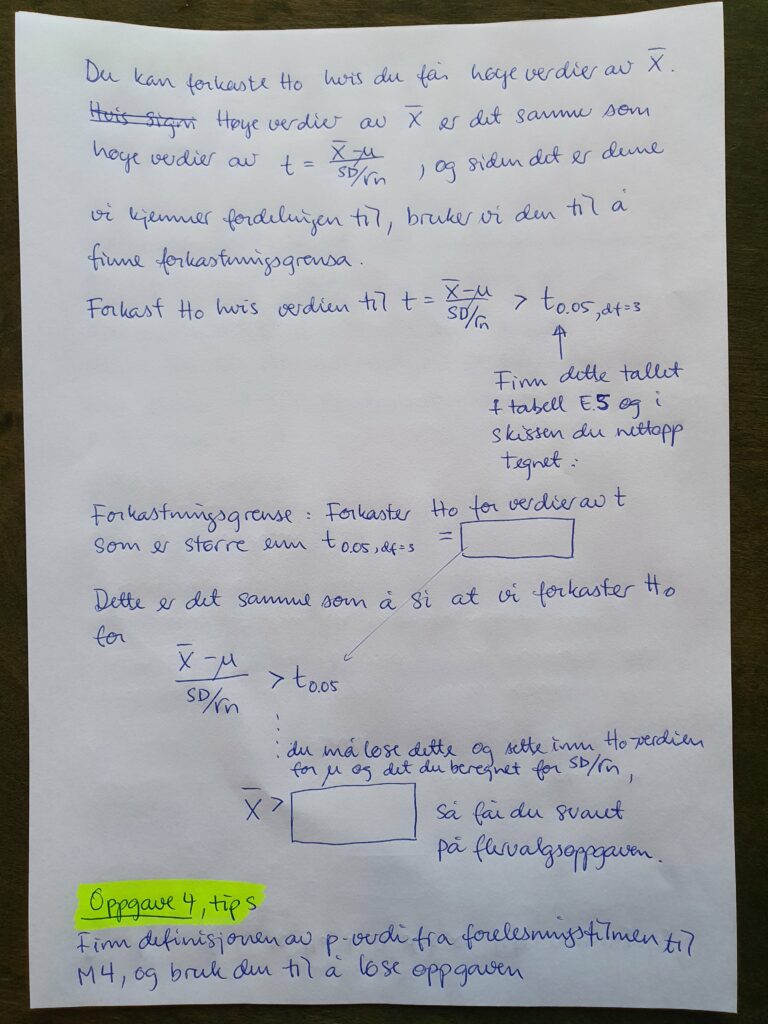 Du kan forkaste H0 hvis du får høye verdier av X̄.
Hvis Sign Høye verdier av X̄ er det samme som
høye verdier av t = (X̄-μ)/(SD/√n), og siden det er denne
vi kjenner fordelingen til, bruker vi den til å
finne forkastningsgrensa.
Forkast H0 hvis verdien til t = (X̄-μ)/(SD/√n) > t0.05, df=3
Finn dette tallet
f tabell E.5 og i
skissen du nettopp
tegnet:
Forkastningsgrense: Forkaster H0 for verdier av t
som er større enn t0.05, df=3 =
Dette er det samme som å si at vi forkaster H0
for
(X̄-μ)/(SD/√n) > t0.05
du må løse dette og sette inn H0-verdien
for μ og det du beregnet for SD/√n,
X̄ >
så får du svaret
på flervalgsoppgaven.
Oppgave 4, tips
Finn definisjonen av p-verdi fra forelesningsfilmen til
M4, og bruk den til å løse oppgaven